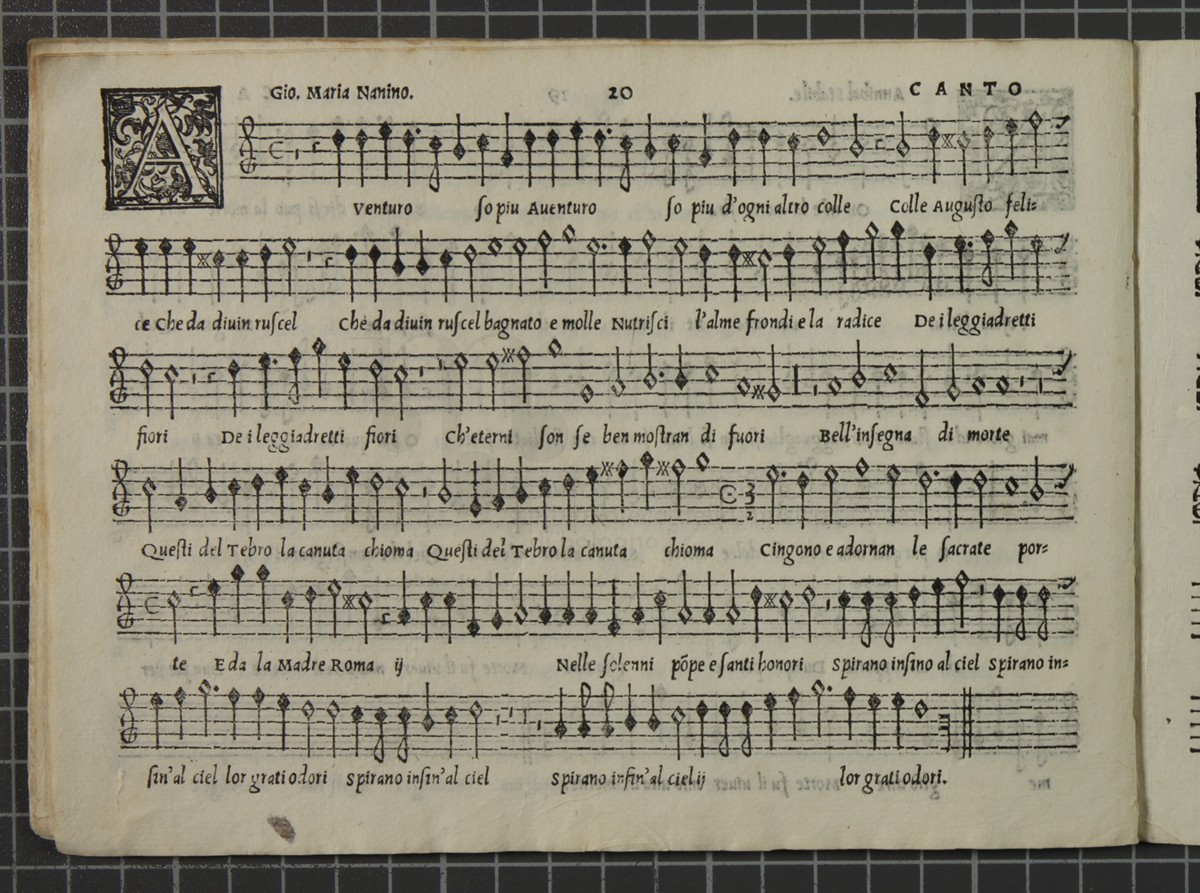 Gio. Maria Nanino. 20 CANTO
A Venturo so piu Auenturo so piu d'ogni altro colle Colle Augusto feli=
ce Che da diuin ruscel Che da diuin ruscel bagnato e molle Nutrisci l'alme frondi e la radice De i leggiadretti
fiori De i leggiadretti fiori Ch'eterni son se ben mostran di fuori Bell'insegna di morte
Questi del Tebro la canuta chioma Questi del Tebro la canuta chioma Cingono e adornan le sacrate por=
te E da la Madre Roma ij Nelle solenni põpe e santi honori Spirano insino al ciel Spirano in=
sin'al ciel lor grati odori Spirano insin'al ciel Spirano insin'al ciel ij lor grati odori.